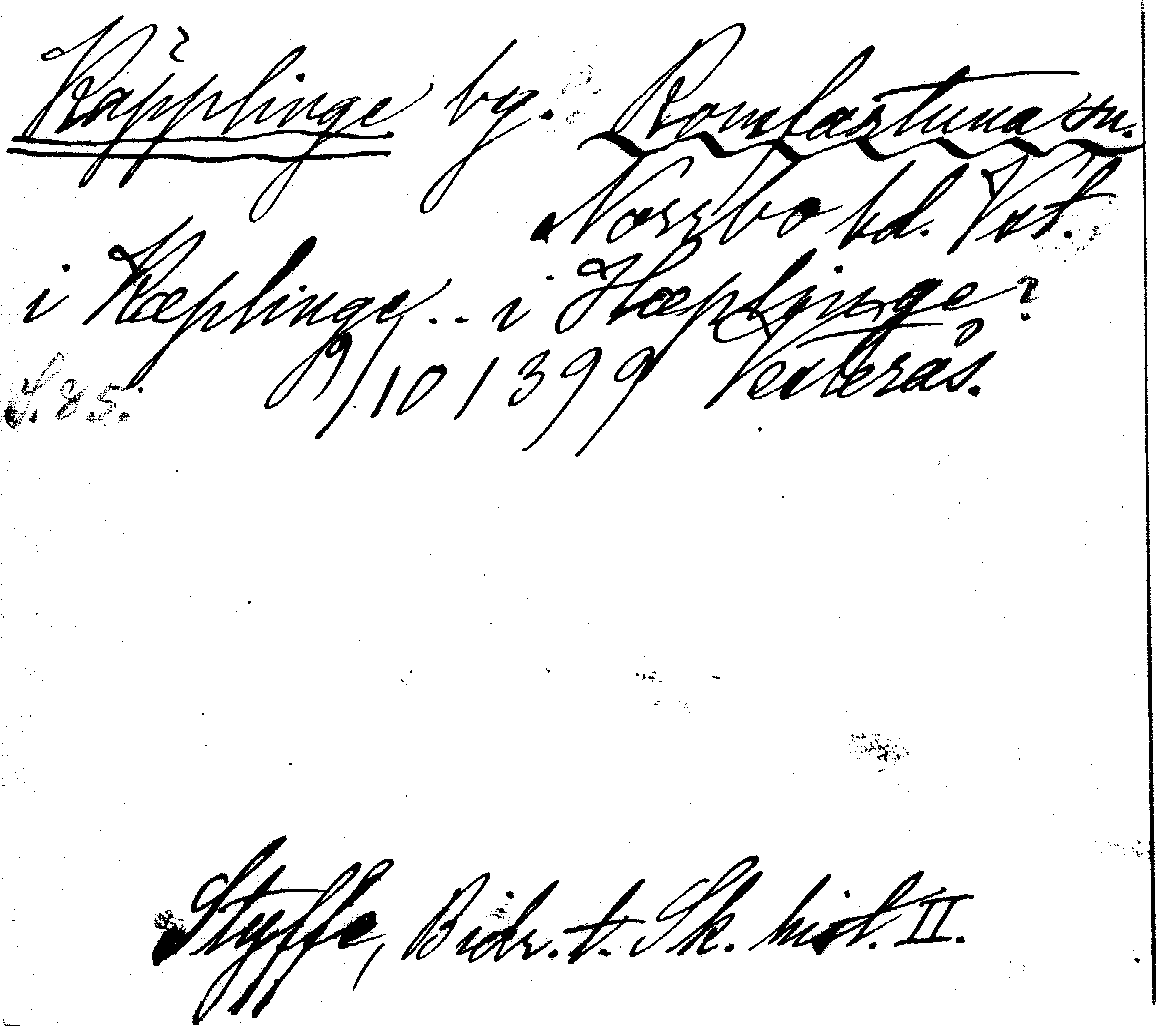 Käpplinge by. Romfartuna sn.
Norrbo hd. Vstl.
i Kæplinge .. i Hæplinge?
9/10 1399 Vesterås.
S. 85.
Styffe, Bidr. t. Sk. hist. II.